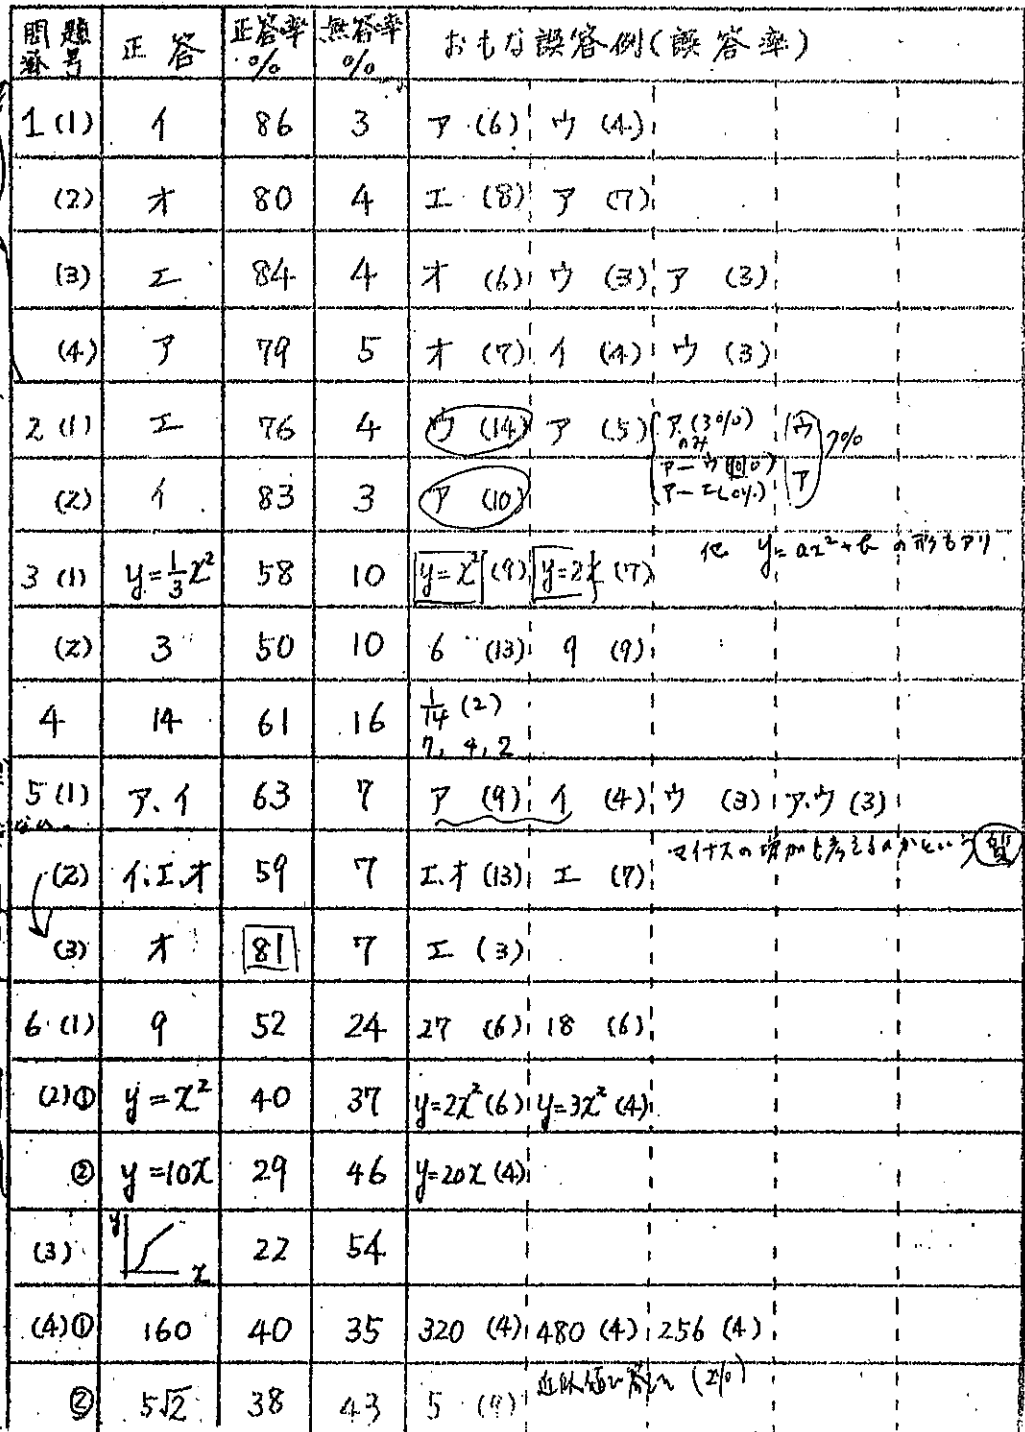 問題番号 正答 正答率% 無答率% おもな誤答例(誤答率)
1(1) イ 86 3 ア(6) ウ(4)
(2) オ 80 4 エ(8) ア(7)
(3) エ 84 4 オ(6) ウ(3) ア(3)
(4) ア 79 5 オ(7) イ(4) ウ(3)
2(1) エ 76 4 ウ(14) ア(5) ア(3%)のみ ウ 7%
(2) イ 83 3 ア(10) ア-ウ ア-エ(0%) ア
他 y=ax²+b の形もアリ
3(1) y=1/3x² 58 10 y=x²(9) y=2x(7)
(2) 3 50 10 6(13) 9(9)
4 14 61 16 1/14(2)
7, 4, 2
5(1) ア.イ 63 7 ア(9) イ(4) ウ(3) ア.ウ(3)
(2) イ.エ.オ 59 7 エ.オ(13) エ(7) マイナスの
(3) オ 81 7 エ(3)
6(1) 9 52 24 27(6) 18(6)
(2)① y=x² 40 37 y=2x²(6) y=3x²(4)
② y=10x 29 46 y=20x(4)
(3) y x 22 54
(4)① 160 40 35 320(4) 480(4) 256(4)
② 5√2 38 43 5 近似値で (2%)